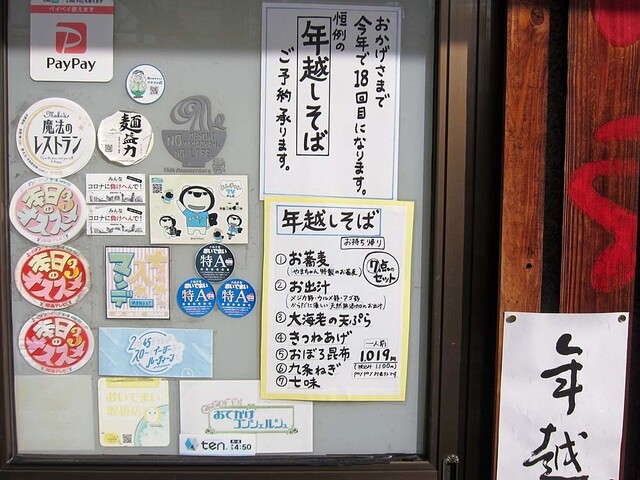 ペイペイ使えます
PayPay
Mahie
魔法の
レストラン
麺
力
NO
LIFE
15th Anniversary
本日の
オススメ3
みんな
コロナに負けへんで!
みんな
コロナに負けへんで!
本日の
オススメ3
本日の
オススメ3
おいでまい
特A
おいでまい
特A
おいでまい
特A
スロー イージー
ルーティーン
おいでまい
取扱店
おでかけ
コンシェルジュ
ten.
4:50
おかげさまで
今年で18回目になります。
恒例の
年越しそば
ご予約承ります。
年越しそば
お持ち帰り
7点のセット
①お蕎麦
(やまちゃん特製のお蕎麦)
②お出汁
メジカ節・ウルメ節・アゴ節
からだに優しい天然無添加のお出汁
③大海老の天ぷら
④きつねあげ
⑤おぼろ昆布
⑥九条ねぎ
⑦七味
一人前
1,019円
(税込み1,100円)
年越